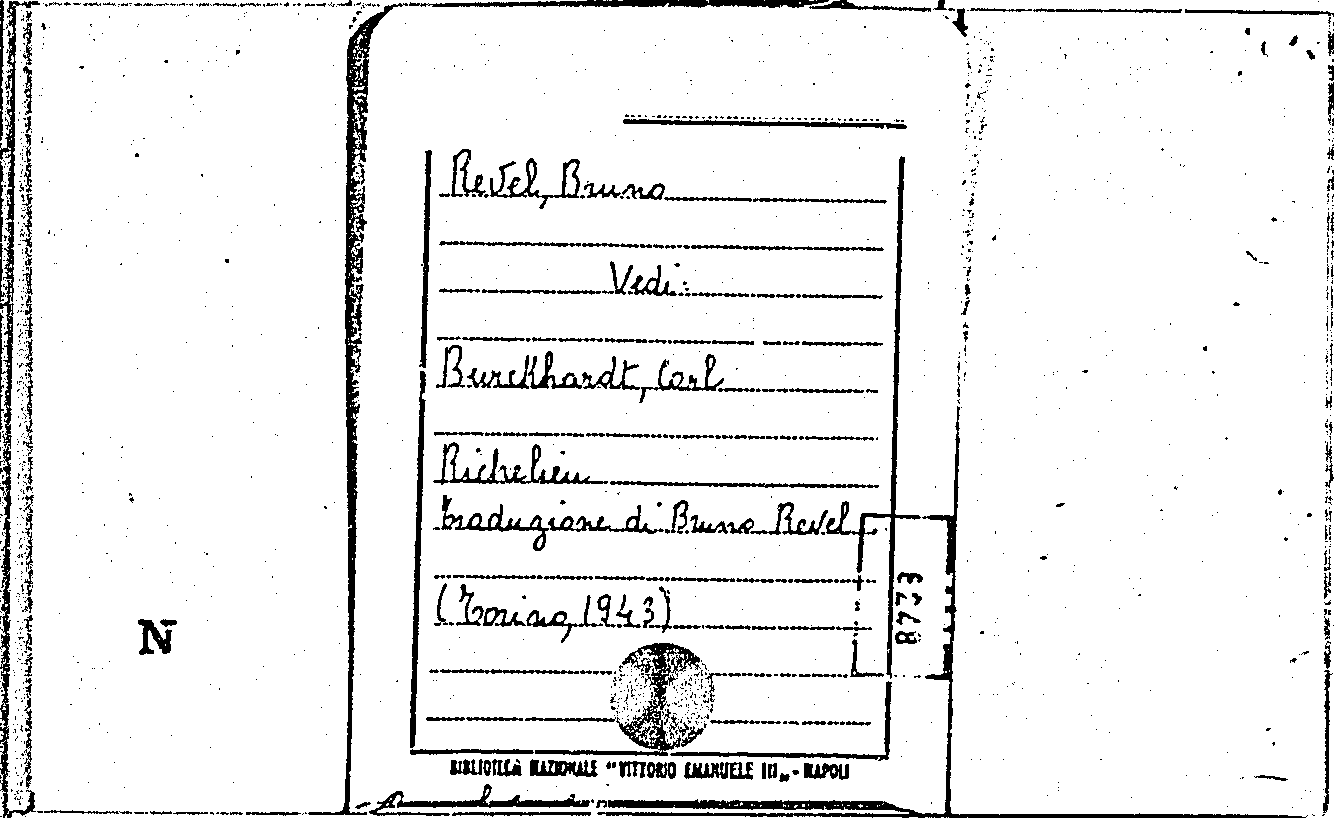 Revel, Bruno
Vedi:
Burckhardt, Carl
Richelieu
traduzione di Bruno Revel
(Torino, 1943)
8773
N
BIBLIOTECA NAZIONALE "VITTORIO EMANUELE III„ - NAPOLI